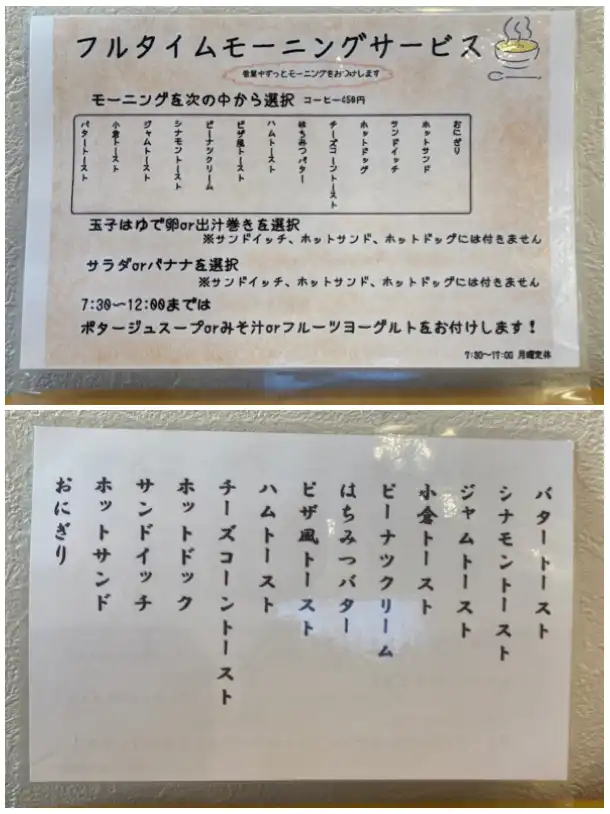 フルタイムモーニングサービス
営業中ずっとモーニングをおつけします
モーニングを次の中から選択 コーヒー450円
バタートースト
小倉トースト
ジャムトースト
シナモントースト
ピーナツクリーム
ピザ風トースト
ハムトースト
はちみつバター
チーズコーントースト
ホットドッグ
サンドイッチ
ホットサンド
おにぎり
玉子はゆで卵or出汁巻きを選択
※サンドイッチ、ホットサンド、ホットドッグには付きません
サラダorバナナを選択
※サンドイッチ、ホットサンド、ホットドッグには付きません
7:30〜12:00までは
ポタージュスープorみそ汁orフルーツヨーグルトをお付けします!
7:30〜17:00 月曜定休
バタートースト
シナモントースト
ジャムトースト
小倉トースト
ピーナツクリーム
はちみつバター
ピザ風トースト
ハムトースト
チーズコーントースト
ホットドック
サンドイッチ
ホットサンド
おにぎり